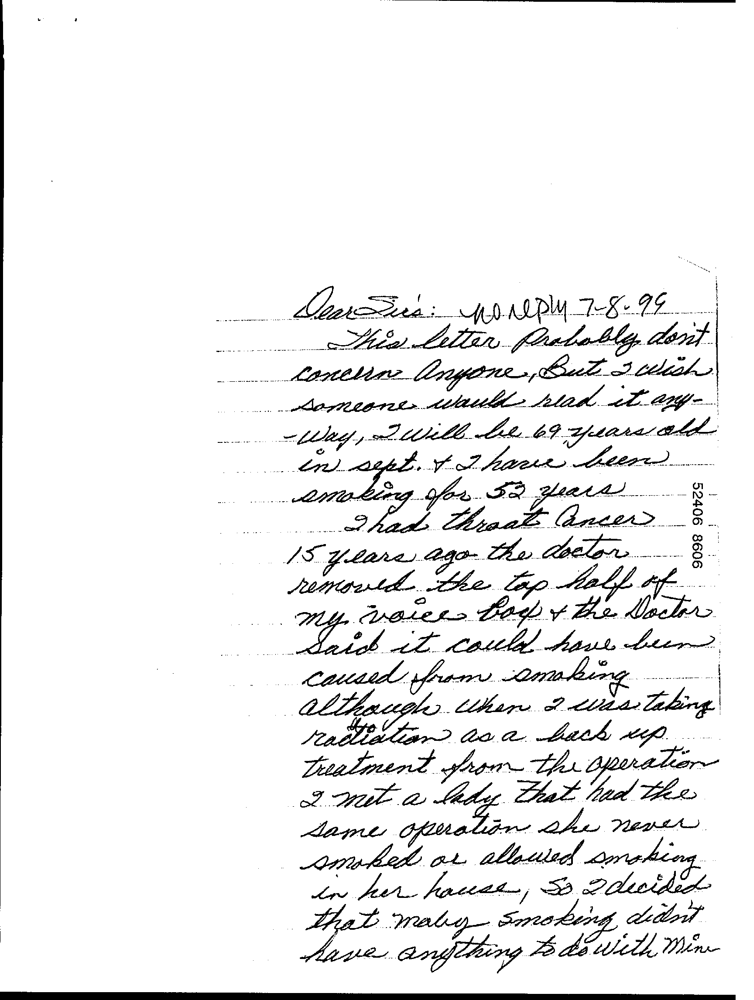 Dear Sir's: no reply 7-8-99
This letter Probably don't
concern Anyone, But I wish
someone would read it any-
-way, I will be 69 years old
in sept. & I have been
smoking for 52 years
I had throat Cancer
15 years ago the doctor
removed the top half of
my voice box & the Doctor
said it could have been
caused from smoking
although when I was taking
radiation as a back up
treatment from the operation
I met a lady that had the
same operation she never
smoked or allowed smoking
in her house, So I decided
that maby smoking didn't
have anything to do with Mine
52406 8606